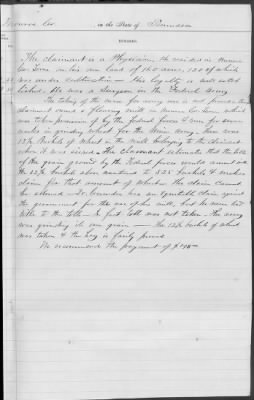 Monroe Co. in the State of Tennessee
REMARKS.
The claimant is a Physician, he resided in Monroe
Co Tenn on his own land of 160 acres, 120 of which
was under cultivation — His loyalty is well estab
lished. He was a Surgeon in the Federal Army
The taking of the mare for army use is not proved — The
claimant owned a flouring mill in Monroe Co Tenn, which
was taken possession of by the Federal forces & run for some
weeks in grinding wheat for the Union Army, there was
12½ Bushels of Wheat in the mill belonging to the claimant
when it was seized — The claimant estimates that the toll
of the grain ground by the Federal forces would amount with
the 12½ bushels above mentioned to 325 bushels & makes
claim for that amount of wheat — The claim cannot
be allowed — Dr. has an equitable claim against
the government for the use of his mill, but he never had
title to the toll — In fact toll was not taken — the army
was grinding its own grain — The 12½ bushels of wheat
was taken & the hay is fairly proved
We recommend the payment of $